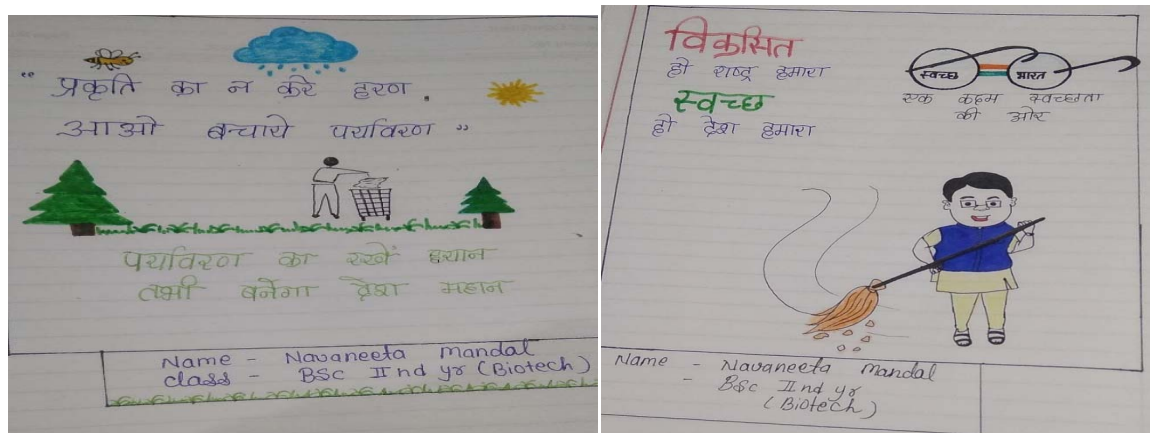 “ प्रकृति का न करे हरण .
आओ बचाये पर्यावरण ”
पर्यावरण का रखें ध्यान
तभी बनेगा देश महान
Name - Navaneeta mandal
class - BSc II nd yr (Biotech)
विकसित
हो राष्ट्र हमारा
स्वच्छ
हो देश हमारा
स्वच्छ भारत
एक कदम स्वच्छता
की ओर
Name - Navaneeta mandal
- BSc II nd yr
(Biotech)